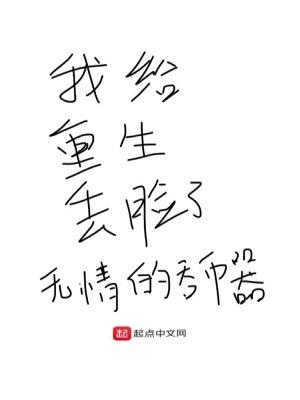 我给
重生
丢脸了
无情的吞币器
起 起点中文网